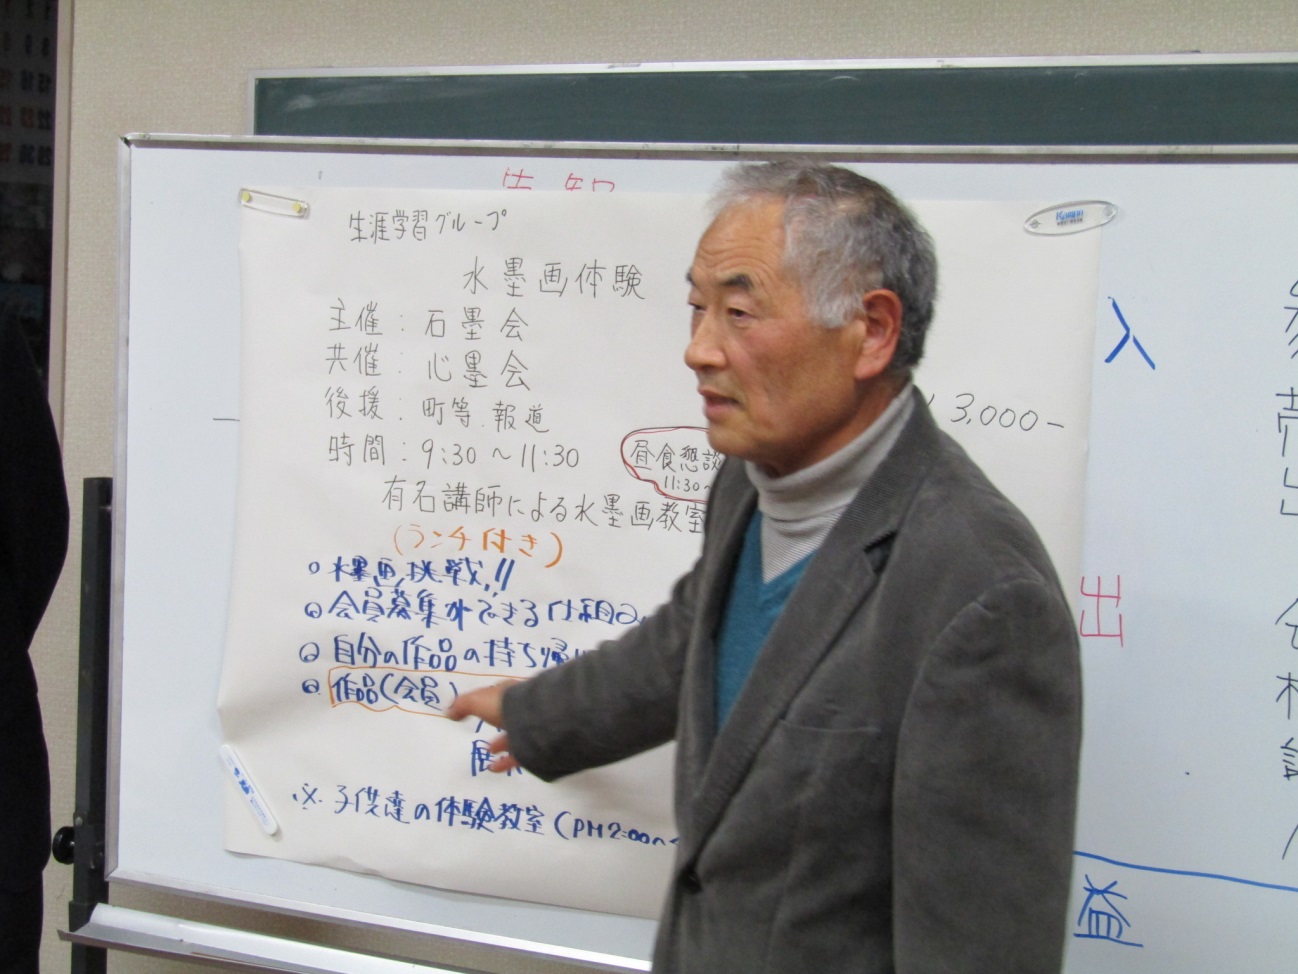 告知
生涯学習グループ
水墨画体験
主催：石墨会
共催：心墨会
後援：町等.報道
時間：9:30～11:30
昼食懇談
11:30～
3,000-
有石講師による水墨画教室
(ランチ付き)
水墨画挑戦!!
会員募集ができる仕組み
自分の作品の持ち帰り
作品(会員)
展
※子供達の体験教室(PM2:00～
入
出
益
売
出